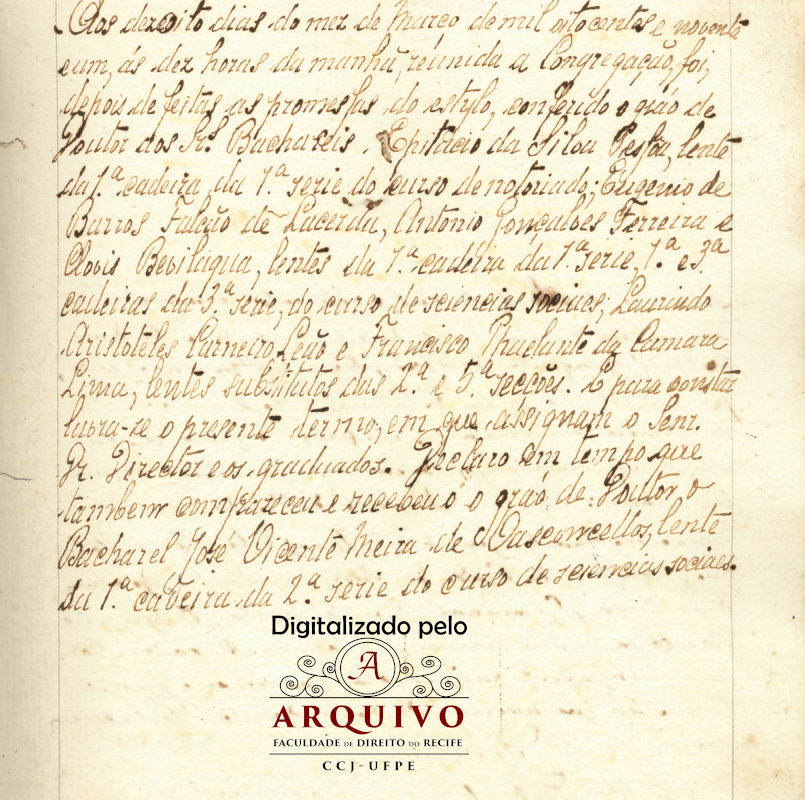 Aos dezoito dias do mez de Março de mil oitocentos e noventa
e um, ás dez horas da manhã, reunida a Congregação, foi,
depois de feitas as promessas do estylo, conferido o gráo de
Doutor aos Srs. Bachareis. Epitacio da Silva Pessôa, lente
da 1.ª cadeira da 1.ª serie do curso de notoriado; Eugenio de
Barros Falcão de Lacerda, Antonio Gonçalves Ferreira e
Clovis Bevilaqua, lentes da 1.ª cadeira da 1.ª serie, 1.ª e 3.ª
cadeiras da 3.ª serie, do curso de sciencias sociaes; Laurindo
Aristoteles Carneiro Leão e Francisco Phaelante da Camara
Lima, lentes substitutos das 2.ª e 5.ª secções. E para constar
lavra-se o presente termo, em que assignam o Senr.
Dr. Director e os graduados. Declaro em tempo que
tambem compareceu e recebeu o gráo de Doutor o
Bacharel José Vicente Meira de Vasconcellos, lente
da 1.ª cadeira da 2.ª serie do curso de sciencias sociaes.
Digitalizado pelo
A
ARQUIVO
FACULDADE DE DIREITO DO RECIFE
CCJ-UFPE